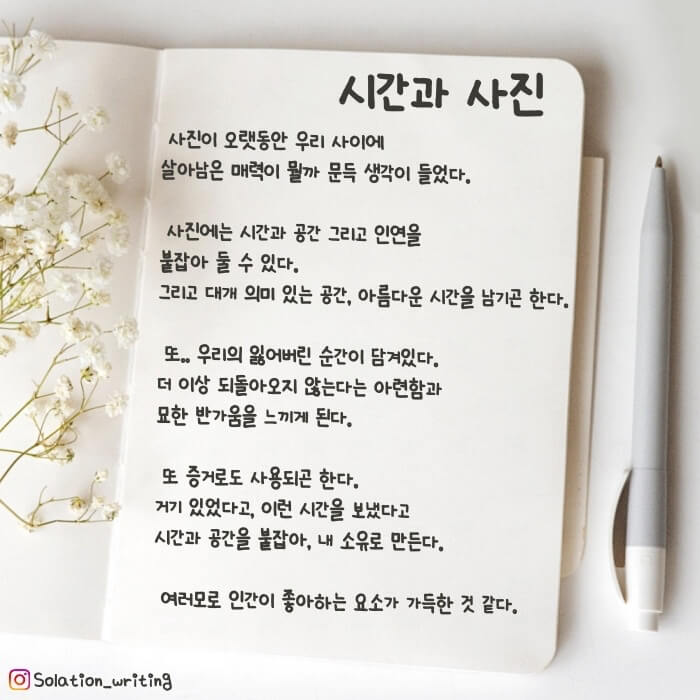 시간과 사진
사진이 오랫동안 우리 사이에
살아남은 매력이 뭘까 문득 생각이 들었다.
사진에는 시간과 공간 그리고 인연을
붙잡아 둘 수 있다.
그리고 대개 의미 있는 공간, 아름다운 시간을 남기곤 한다.
또.. 우리의 잃어버린 순간이 담겨있다.
더 이상 되돌아오지 않는다는 아련함과
묘한 반가움을 느끼게 된다.
또 증거로도 사용되곤 한다.
거기 있었다고, 이런 시간을 보냈다고
시간과 공간을 붙잡아, 내 소유로 만든다.
여러모로 인간이 좋아하는 요소가 가득한 것 같다.
Solation_writing